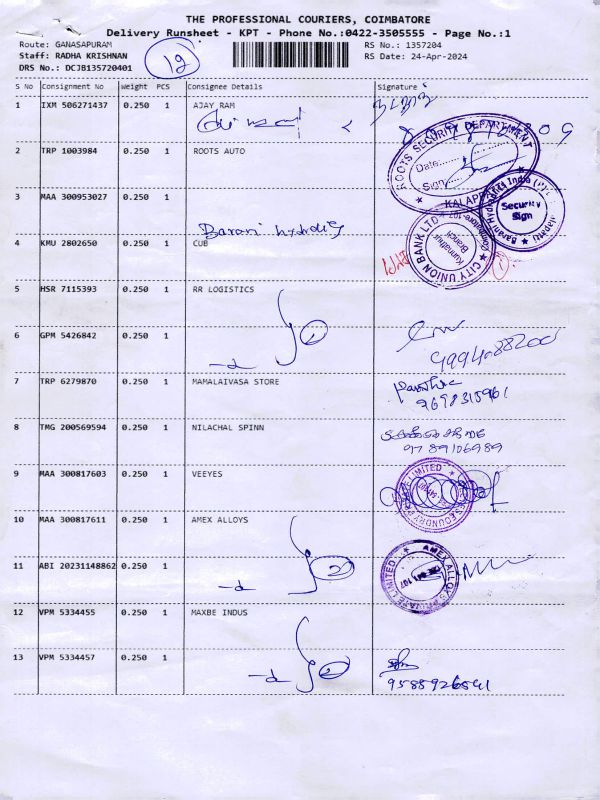 THE PROFESSIONAL COURIERS, COIMBATORE
Delivery Runsheet - KPT - Phone No.:0422-3505555 - Page No.:1
Route: GANASAPURAM
RS No.: 1357204
Staff: RADHA KRISHNAN
RS Date: 24-Apr-2024
DRS No.: DCJB135720401
12
S No Consignment No Weight PCS Consignee Details Signature
1 IXM 506271437 0.250 1 AJAY RAM
2 TRP 1003984 0.250 1 ROOTS AUTO
ROOTS SECURITY DEPARTMENT
Date:
Sign:
3 MAA 300953027 0.250 1
Security
Sign
Barani hydralig
4 KMU 2802650 0.250 1 CUB
CITY UNION BANK LTD
Branch
5 HSR 7115393 0.250 1 RR LOGISTICS
6 GPM 5426842 0.250 1
7 TRP 6279870 0.250 1 MAMALAIVASA STORE
9698315961
8 TMG 200569594 0.250 1 NILACHAL SPINN
9789106989
9 MAA 300817603 0.250 1 VEEYES
10 MAA 300817611 0.250 1 AMEX ALLOYS
11 ABI 20231148862 0.250 1
AMEX ALLOYS PRIVATE LIMITED
12 VPM 5334455 0.250 1 MAXBE INDUS
13 VPM 5334457 0.250 1
9588926841